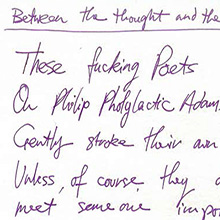 Between the thought and the
These fucking Poets
On Philip Phothylactic Adams
Gently stroke their own
Unless, of course, they
meet someone